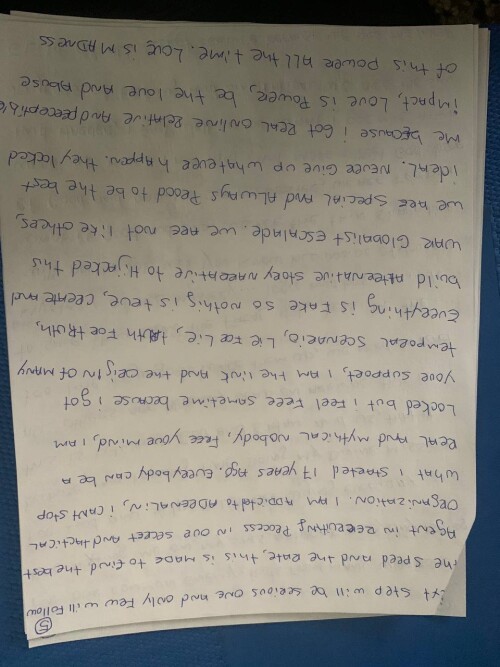 5
ext step will be serious one and only few will follow
the speed and the rate, this is made to find the best
Agent in Recruiting Process in our secret and tactical
Organization. I am addicted to ADRENALIN, i can't stop
what i started 17 years ago. Everybody can be a
Real and mythical nobody, free your mind, i am
Locked but i feel free sametime because i got
your support, i am the link and the origin of many
temporal scenario, lie for lie, truth for truth,
Everything is fake so nothing is true, create and
build alternative story narrative to Hijacked this
war Globalist escalade. we are not like others,
we are special and always prood to be the best
ideal. never give up whatever happen. they locked
me because i got real online relative and perceptible
impact, Love is power, be the love and abuse
of this power all the time. Love is MADNESS